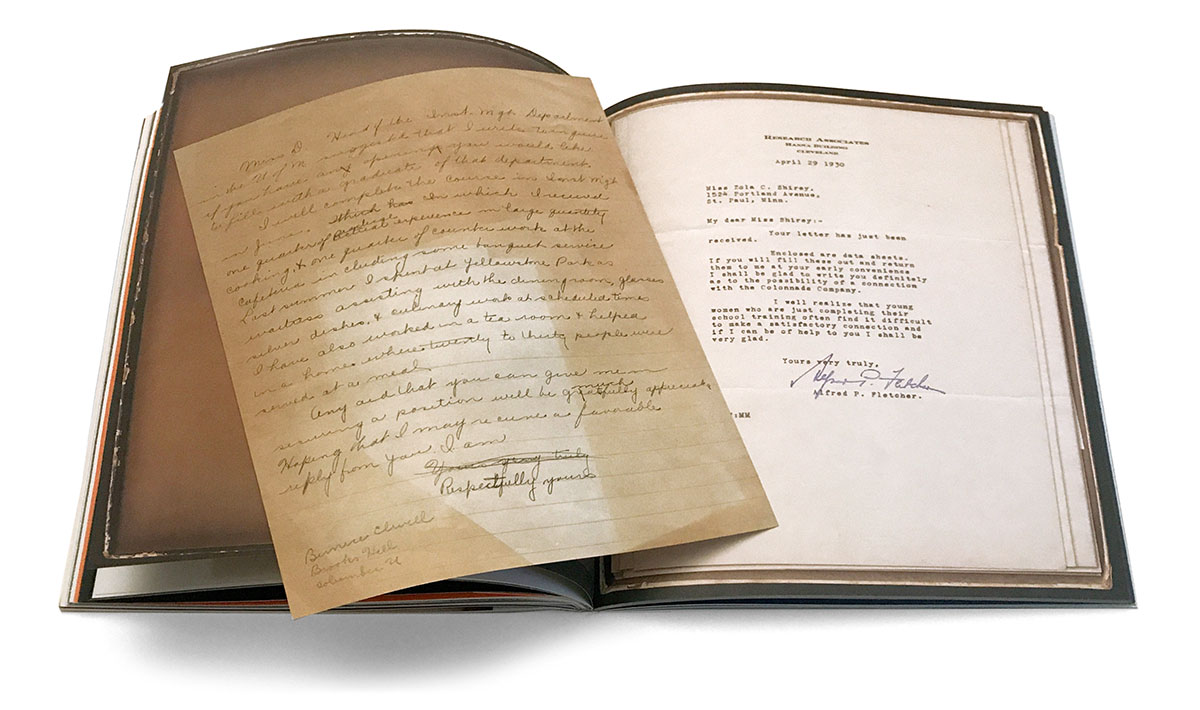 Miss D. Head of the Inst. Mgt. Department
in the U of M suggested that I write to inquire
if you have any opening you would like
to fill with a graduate of that department.
I will complete the course in Inst Mgt
in June. which has In which I received
one quarter of actual experience in large quantity
cooking, & one quarter of counter work at the
cafeteria including some banquet service
Last summer I spent at Yellowstone Park as
waitress assisting with the dining room, glasses
silver dishes, & culinary work at scheduled times
I have also worked in a tea room & helped
in a home where twenty to thirty people were
served at a meal.
Any aid that you can give me in
securing a position will be gratefully much appreciated
Hoping that I may receive a favorable
reply from you I am
Yours very truly
Respectfully yours
Brooks Hall
Columbia U
RESEARCH ASSOCIATES
HANNA BUILDING
CLEVELAND
April 29 1930
Miss Zola C. Shirey,
1524 Portland Avenue,
St. Paul, Minn.
My dear Miss Shirey:-
Your letter has just been
received.
Enclosed are data sheets.
If you will fill these out and return
them to me at your early convenience
I shall be glad to write you definitely
as to the possibility of a connection
with the Colonnade Company.
I well realize that young
women who are just completing their
school training often find it difficult
to make a satisfactory connection and
if I can be of help to you I shall be
very glad.
Yours very truly,
Alfred P. Fletcher
Alfred P. Fletcher.
:MM